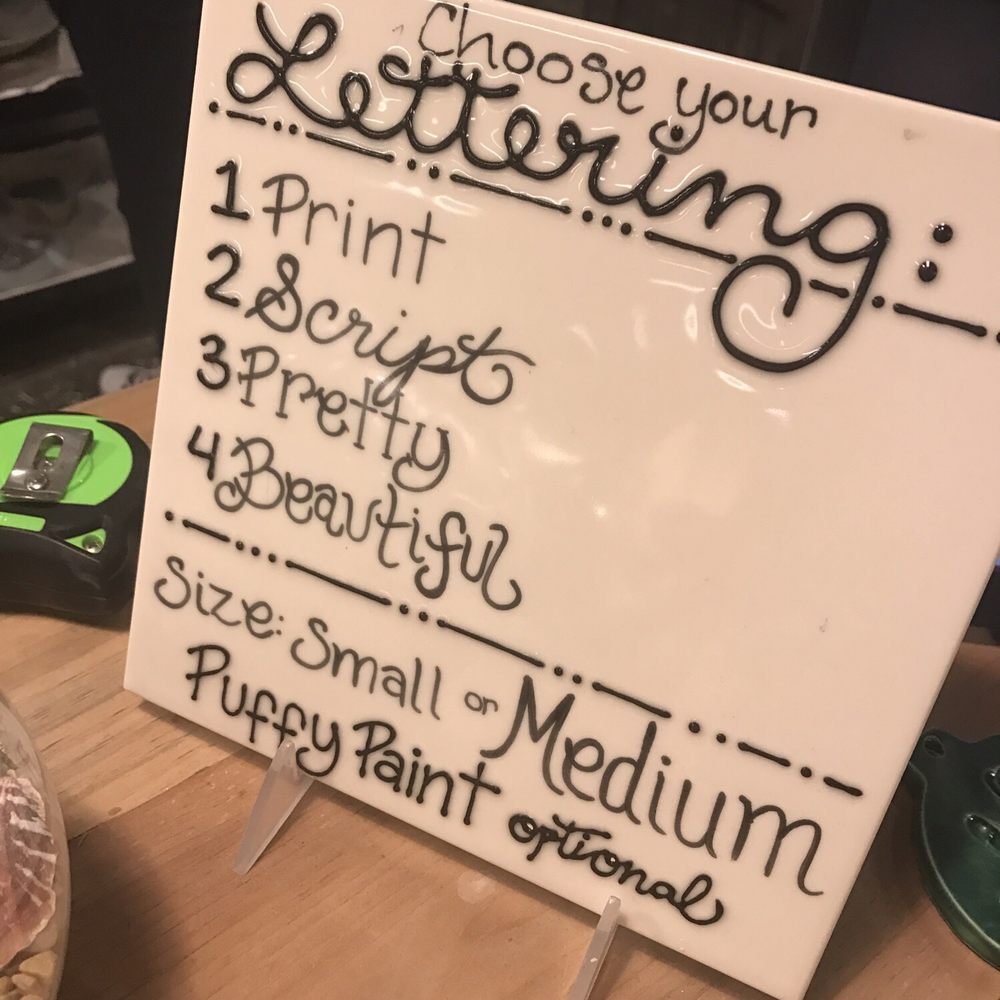 Choose your
Lettering:
1 Print
2 Script
3 Pretty
4 Beautiful
Size: Small or Medium
Puffy Paint optional